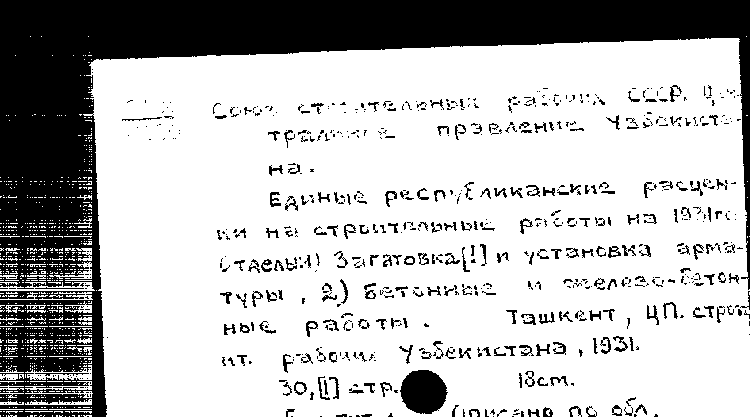 Союз строительных рабочих СССР. Цен-
тральное правление Узбекиста-
на.
Единые республиканские расцен-
ки на строительные работы на 1931го
Отделы:1) Загатовка[!] и установка арма-
туры, 2) Бетонные и железо-бетон-
ные работы. Ташкент, ЦП. строи
ит. рабочих Узбекистана, 1931.
30,[1] стр. 18cm.
описано по обл.